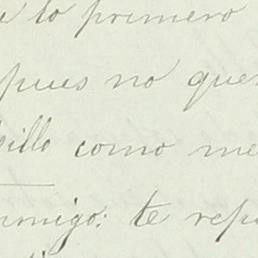 lo primero
pues no que
como me
migo: te rep